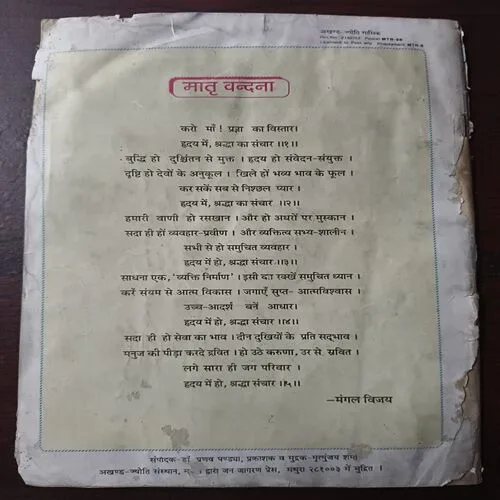 अखण्ड-ज्योति मासिक
मातृ वन्दना
करो माँ! प्रज्ञा का विस्तार।
हृदय में, श्रद्धा का संचार ॥१॥
बुद्धि हो दुश्चिंतन से मुक्त । हृदय हो संवेदन-संयुक्त ।
दृष्टि हो देवों के अनुकूल । खिले हों भव्य भाव के फूल ।
कर सकें सब से निश्छल प्यार ।
हृदय में हो, श्रद्धा संचार ॥२॥
हमारी वाणी हो रसखान । और हो अधरों पर मुस्कान ।
सदा ही हों व्यवहार-प्रवीण । और व्यक्तित्व सभ्य-शालीन ।
सभी से हो समुचित व्यवहार ।
हृदय में हो, श्रद्धा संचार ॥३॥
साधना एक, 'व्यक्ति निर्माण' । इसी का रक्खें समुचित ध्यान ।
करें संयम से आत्म विकास । जगाएँ सुप्त- आत्मविश्वास ।
उच्च-आदर्श बनें आधार।
हृदय में हो, श्रद्धा संचार ॥४॥
सदा ही हो सेवा का भाव । दीन दुखियों के प्रति सद्भाव ।
मनुज की पीड़ा करदे द्रवित । हो उठे करुणा, उर से स्रवित ।
लगे सारा ही जग परिवार ।
हृदय में हो, श्रद्धा संचार ॥५॥
—मंगल विजय
संपादक-डॉ प्रणव पण्ड्या, प्रकाशक व मुद्रक-मृत्युंजय शर्मा
अखण्ड-ज्योति संस्थान, द्वारा जन जागरण प्रेस, मथुरा २८१००३ में मुद्रित ।